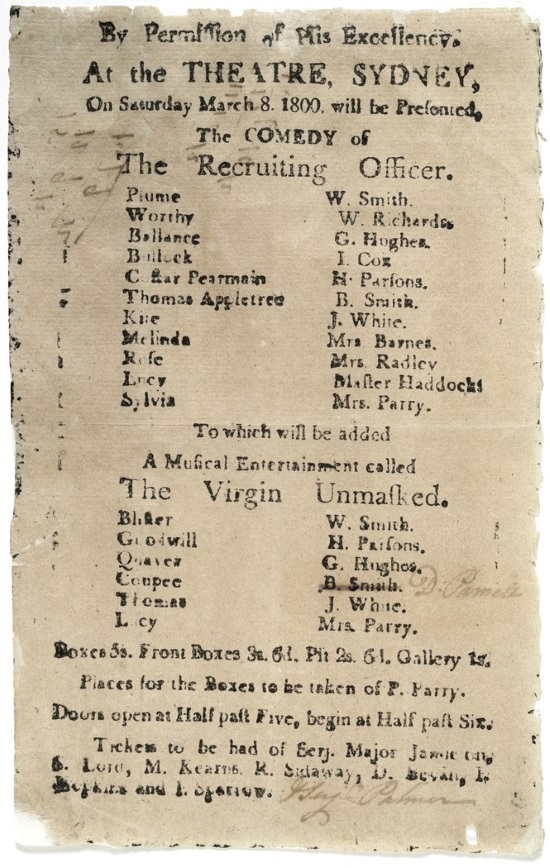 By Permiſſion of His Excellency.
At the THEATRE, SYDNEY,
On Saturday March 8. 1800. will be Preſented,
The COMEDY of
The Recruiting Officer.
Plume W. Smith.
Worthy W. Richards.
Ballance G. Hughes.
Bullock I. Cox
Coſtar Pearmain H. Parſons.
Thomas Appletree B. Smith.
Kite J. White.
Melinda Mrs. Barnes.
Roſe Mrs. Radley
Lucy Maſter Haddocks
Sylvia Mrs. Parry.
To which will be added
A Muſical Entertainment called
The Virgin Unmaſked.
Bliſter W. Smith.
Goodwill H. Parſons.
Quaver G. Hughes.
Coupee B. Smith.
Thomas J. White.
Lucy Mrs. Parry.
Boxes 5s. Front Boxes 3s. 6d. Pit 2s. 6d. Gallery 1s.
Places for the Boxes to be taken of P. Parry.
Doors open at Half paſt Five, begin at Half paſt Six.
Tickets to be had of Serj. Major Jamieſon,
S. Lord, M. Kearns. R. Sidaway, D. Bevan,
Hopkins and I. Sparrow. Palmer